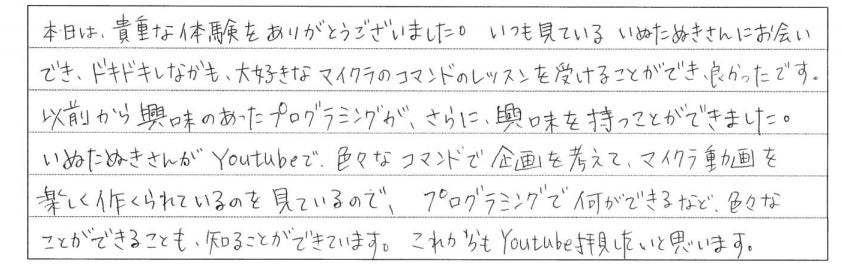 本日は、貴重な体験をありがとうございました。いつも見ている いぬたぬきさんにお会い
でき、ドキドキしながも、大好きな マイクラのコマンドのレッスンを受けることができ、良かったです。
以前から興味のあったプログラミングが、さらに、興味を持つことができました。
いぬたぬきさんが Youtubeで、色々な コマンドで 企画を考えて、マイクラ動画を
楽しく作くられているのを 見ているので、 プログラミングで 何ができるなど、色々な
ことができることも、知ることができています。 これからもYoutube拝見したいと思います。